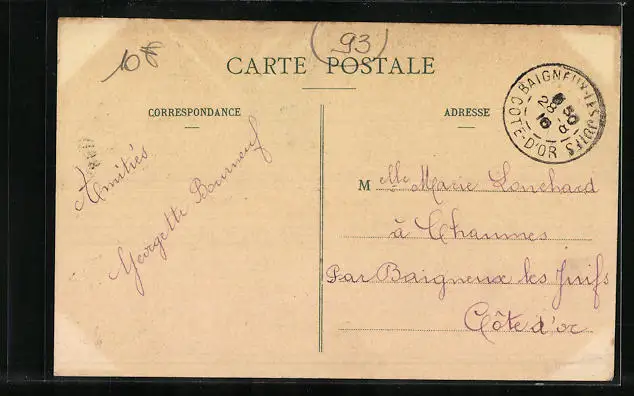 10F
(93)
CARTE POSTALE
CORRESPONDANCE
ADRESSE
BAIGNEUX-LES-JUIFS
COTE-D'OR
Amitiés
Georgette Bourneuf
Melle Marie Lonchard
à Chaumes
Par Baigneux les Juifs
Côte d'or